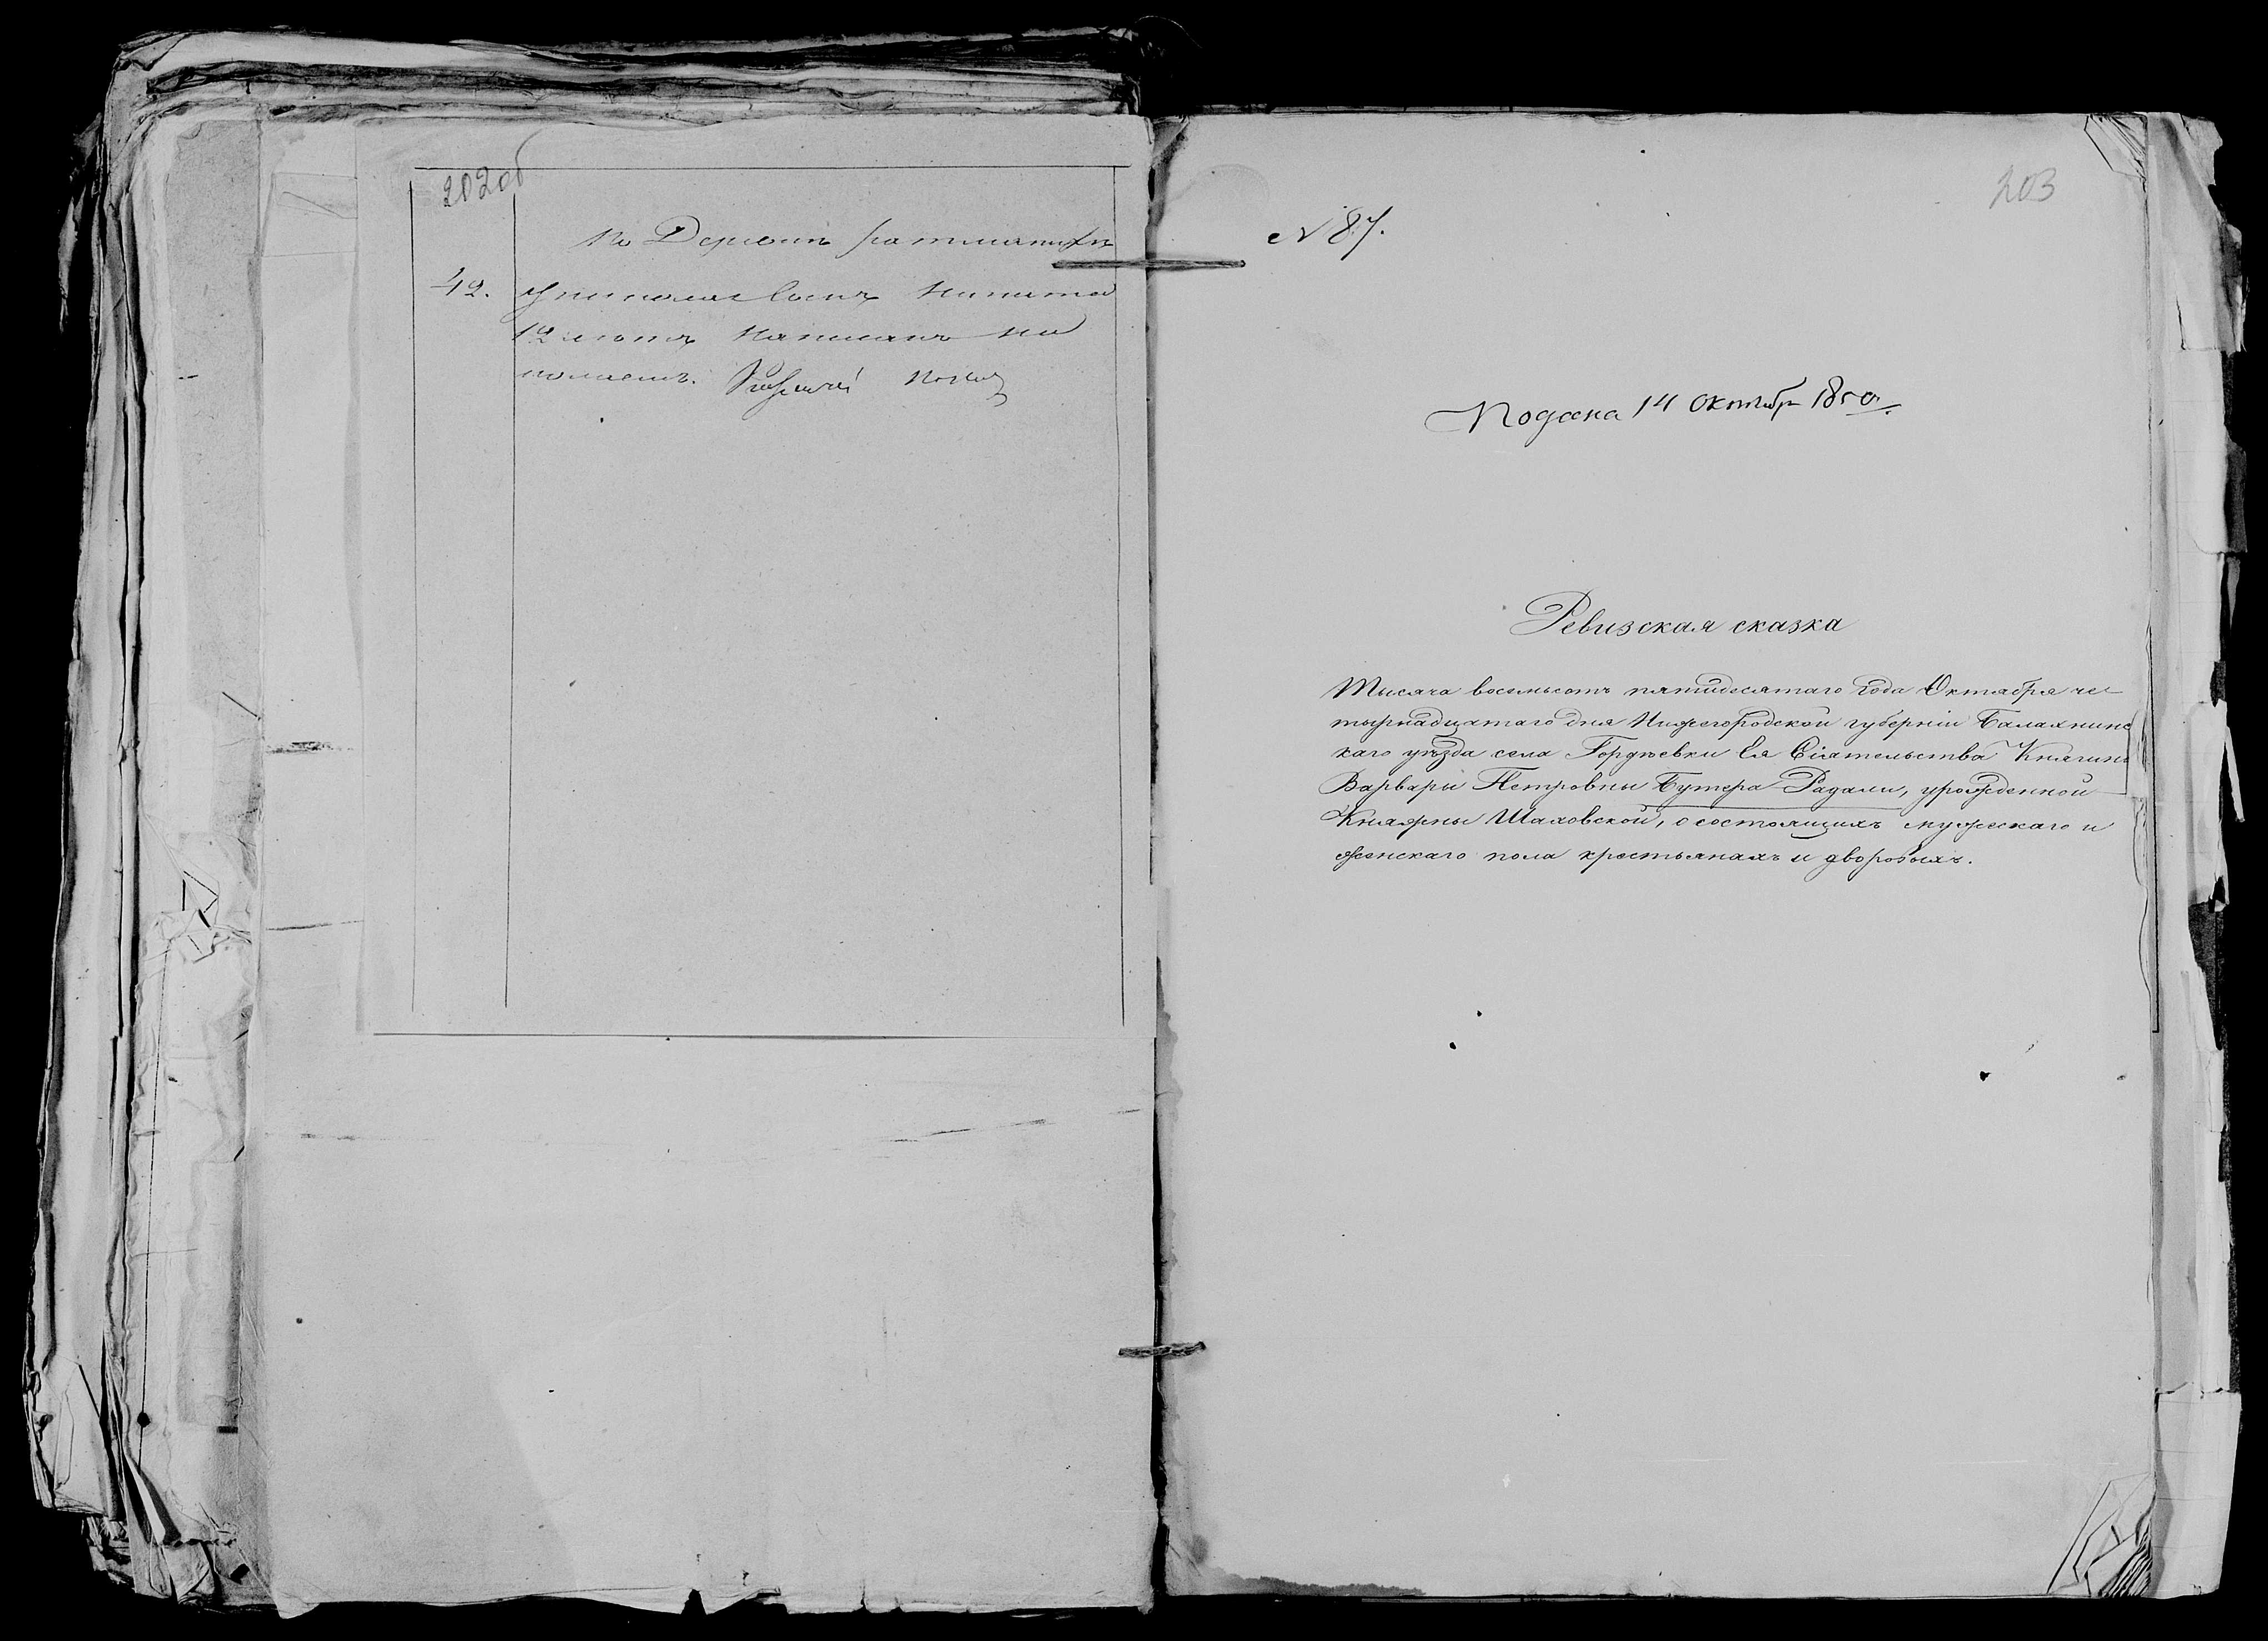 202об
По Деревни
42. сынъ Никита
12 летъ Написанъ на
203
N 87.
Подана 14 Октября 1850 г.
Ревизская сказка
Тысяча восемьсотъ пятидесятаго года Октября че-
тырнадцатаго дня Нижегородской губерніи Балахнинс
каго уѣзда села Гордѣевки Ея Сіятельства Княгини
Варвары Петровны Бутера-Радали, урожденной
Княжны Шаховской, о состоящихъ мужескаго и
женскаго пола крестьянахъ и дворовыхъ.